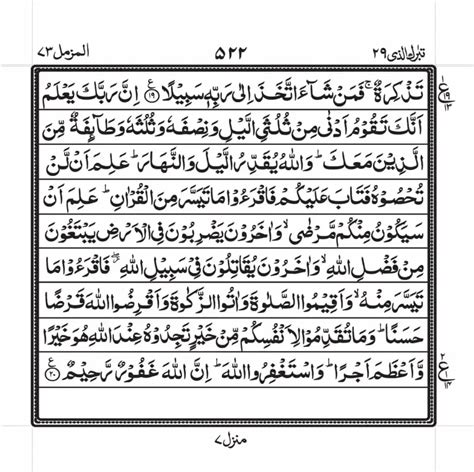 تبٰرك الذی ۲۹ ۵۲۲ المزمل ۷۳
تَذْكِرَةٌ ۚ فَمَنْ شَآءَ اتَّخَذَ اِلٰى رَبِّهٖ سَبِيْلًا ﴿۱۹﴾ اِنَّ رَبَّكَ يَعْلَمُ
اَنَّكَ تَقُوْمُ اَدْنٰى مِنْ ثُلُثَيِ الَّيْلِ وَنِصْفَهٗ وَثُلُثَهٗ وَطَآئِفَةٌ مِّنَ
الَّذِيْنَ مَعَكَ ؕ وَاللّٰهُ يُقَدِّرُ الَّيْلَ وَالنَّهَارَ ؕ عَلِمَ اَنْ لَّنْ
تُحْصُوْهُ فَتَابَ عَلَيْكُمْ فَاقْرَءُوْا مَا تَيَسَّرَ مِنَ الْقُرْاٰنِ ؕ عَلِمَ اَنْ
سَيَكُوْنُ مِنْكُمْ مَّرْضٰى ۙ وَاٰخَرُوْنَ يَضْرِبُوْنَ فِى الْاَرْضِ يَبْتَغُوْنَ
مِنْ فَضْلِ اللّٰهِ ۙ وَاٰخَرُوْنَ يُقَاتِلُوْنَ فِيْ سَبِيْلِ اللّٰهِ ۖ فَاقْرَءُوْا مَا
تَيَسَّرَ مِنْهُ ۙ وَاَقِيْمُوا الصَّلٰوةَ وَاٰتُوا الزَّكٰوةَ وَاَقْرِضُوا اللّٰهَ قَرْضًا
حَسَنًا ؕ وَمَا تُقَدِّمُوْا لِاَنْفُسِكُمْ مِّنْ خَيْرٍ تَجِدُوْهُ عِنْدَ اللّٰهِ هُوَ خَيْرًا
وَّاَعْظَمَ اَجْرًا ؕ وَاسْتَغْفِرُوا اللّٰهَ ؕ اِنَّ اللّٰهَ غَفُوْرٌ رَّحِيْمٌ ﴿۲۰﴾
منزل ۷